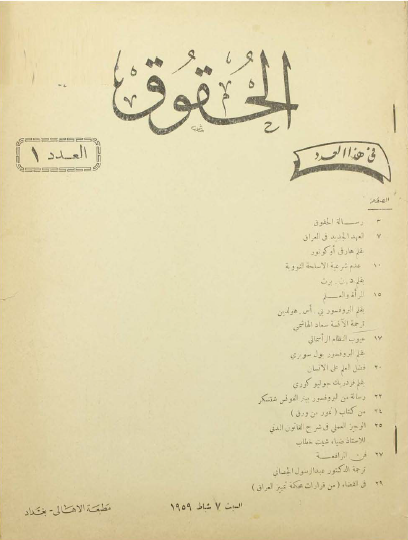 الحُقوُق
العدد ١
في هذا العدد
الصفحة
٣ رسالة الحقوق
٧ العهد الجديد في العراق
بقلم هارفي أوكونور
١٠ عدم شرعية الاسلحة النووية
بقلم د . ن . برت
١٥ المرأة والعلم
بقلم البروفسور بي . أس . هولدين
ترجمة الآنسة سعاد الهاشمي
١٧ عيوب النظام الرأسمالي
بقلم البروفسور بول سويزي
٢٠ فضل العلم على الانسان
بقلم فردريك جوليو كوري
٢٣ رسالة من البروفسور بيار
٢٤ من كتاب ( نمور من ورق )
٢٥ الوجيز العملي في شرح القانون المدني
للاستاذ ضياء شيت خطاب
٢٧ فن المرافعة
ترجمة الدكتور عبدالرسول الجصاني
٢٩ في القضاء ( من قرارات محكمة تمييز العراق )
السبت ٧ شباط ١٩٥٩
مطبعة الاهالي - بغداد